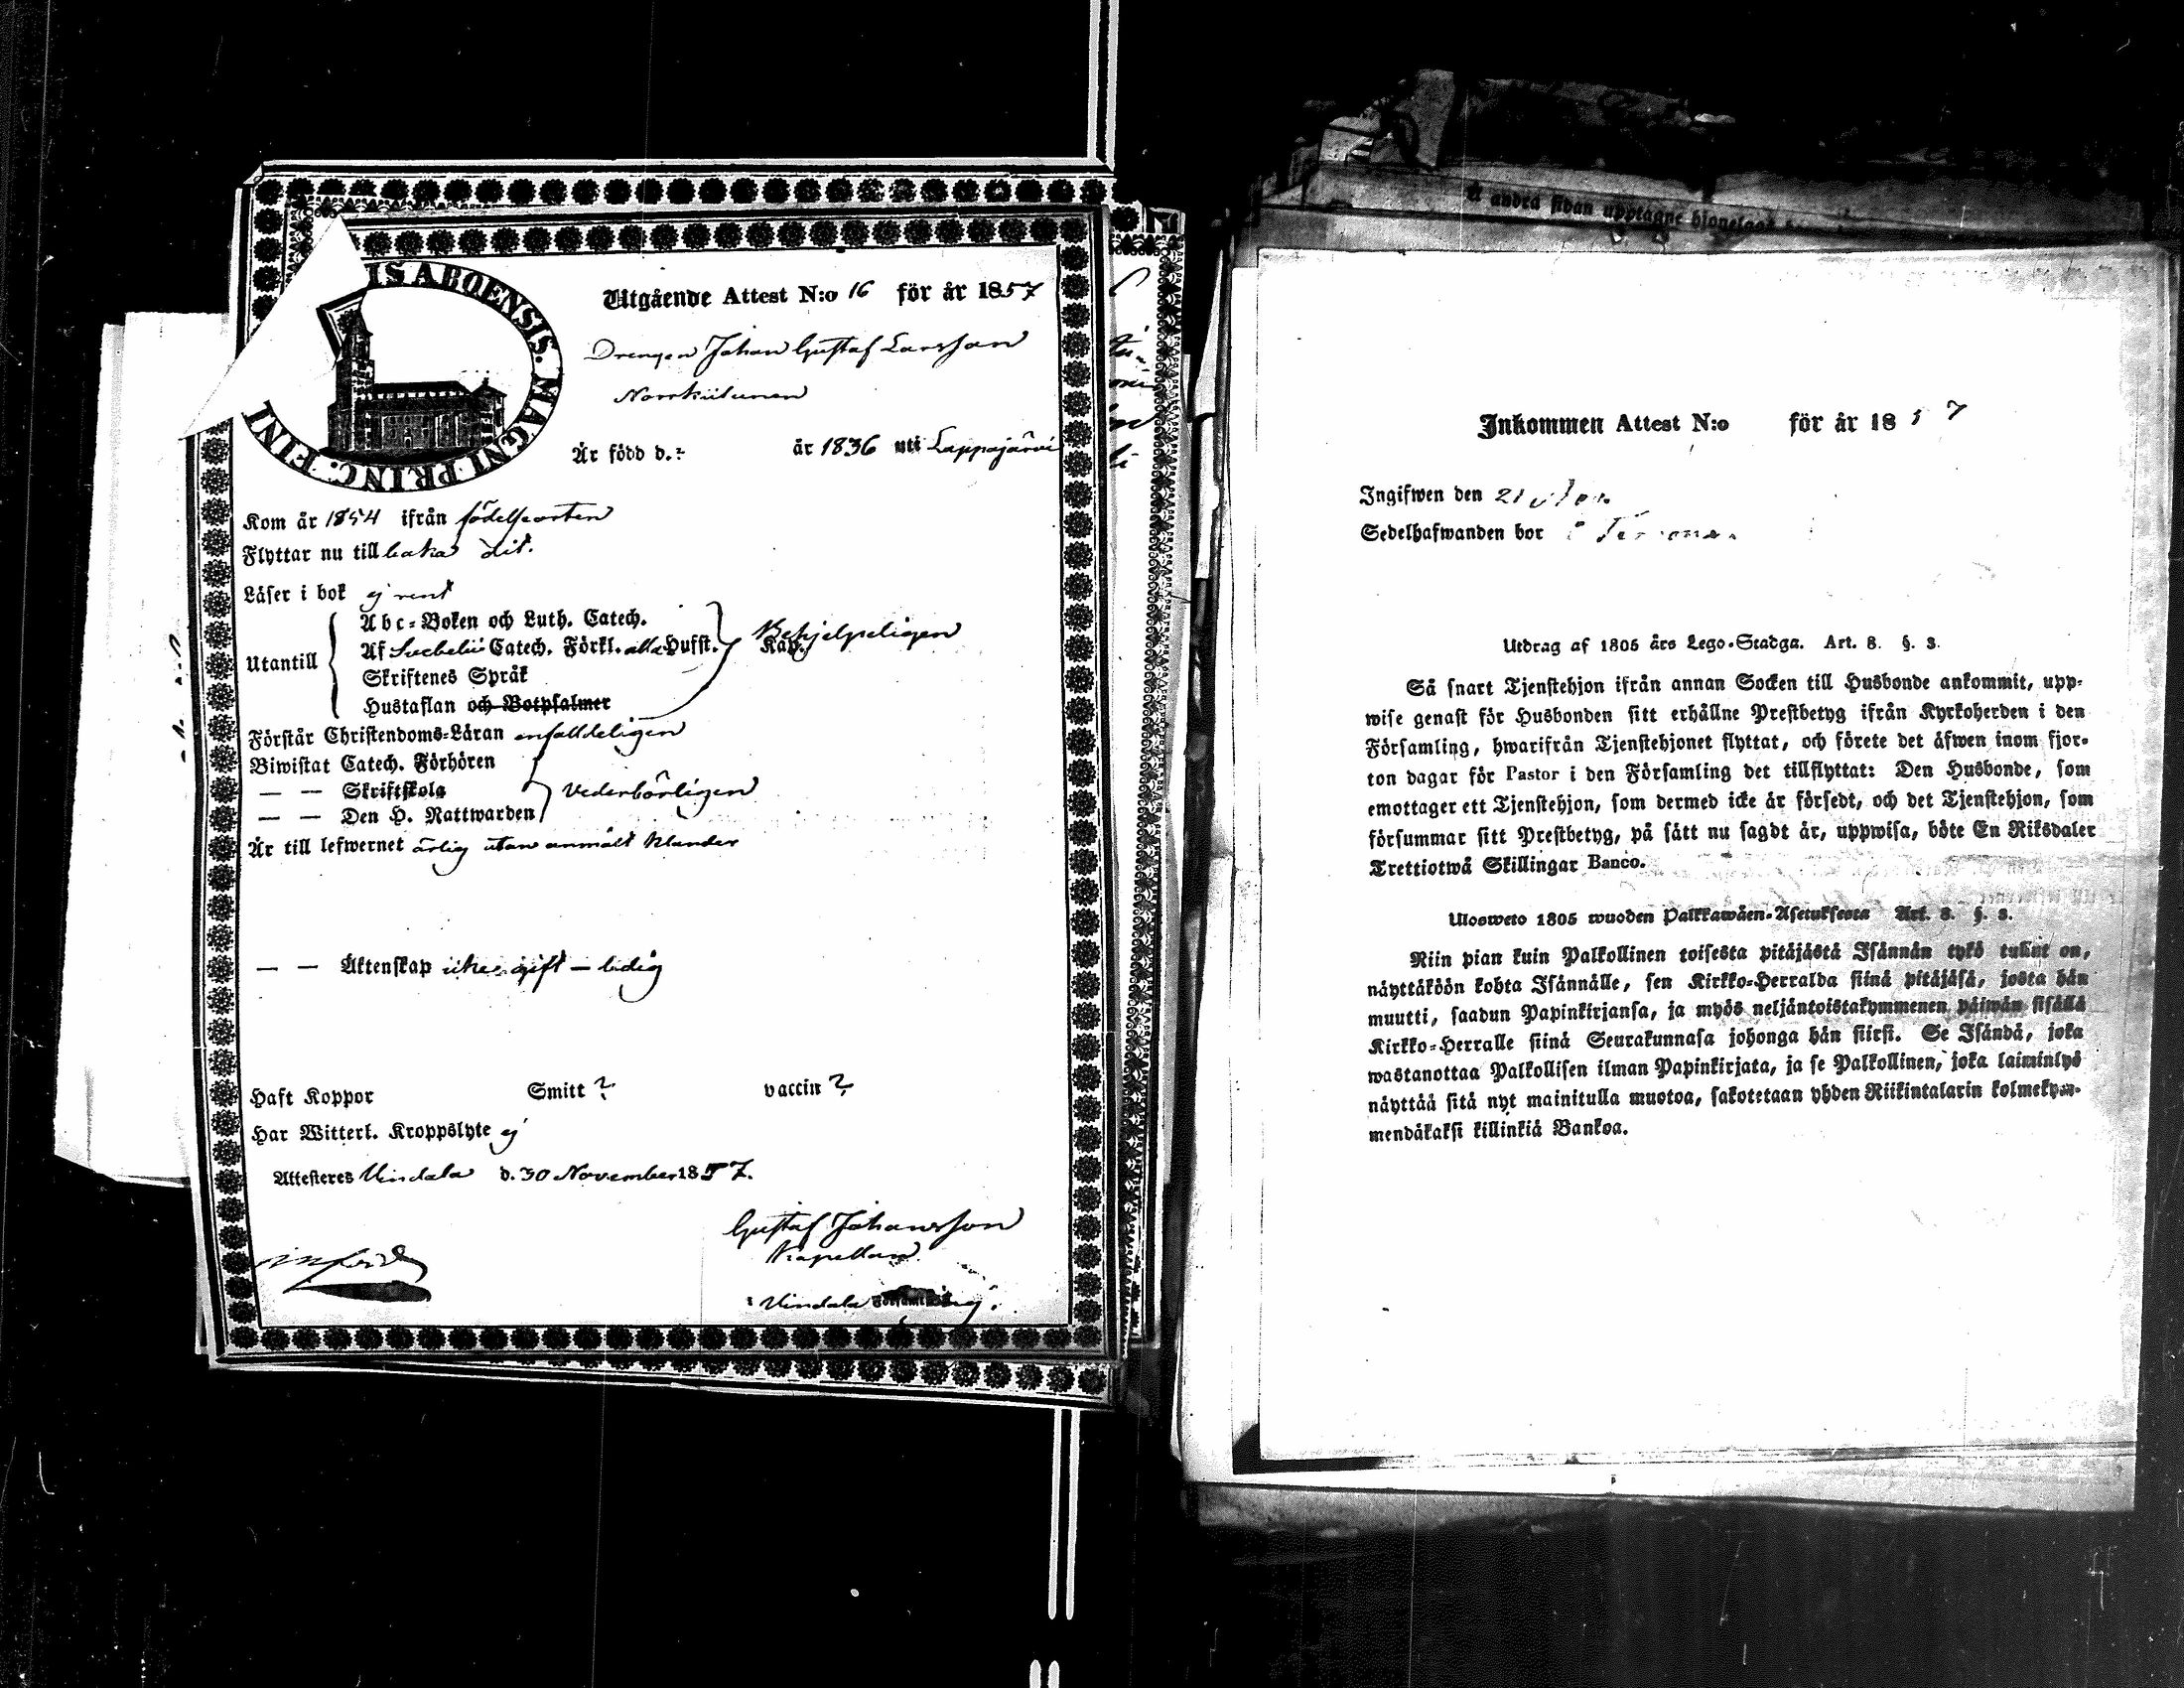 IS ABOENSIS. MAGNI PRINC. FINL
Utgående Attest N:o 16 för år 1857
Drengen Johan Gustaf Larsson
Är född d. ? år 1836 uti Lappajärvi
Kom år 1854 ifrån födelseorten
Flyttar nu till baka dit.
Läser i bok ej rent
Utantill
Abc-Boken och Luth. Catech.
Af Svebelii Catech. Förkl. alla Hufst. Kap. Behjelpeligen
Skriftenes Språk
Hustaflan och Botpsalmer
Förstår Christendoms-Läran enfalldeligen
Biwistat Catech. Förhören
— — Skriftskola Vederbörligen
— — Den H. Nattwarden
Är till lefwernet ärlig utan anmält klander
— — Äktenskap icke gift – ledig
Haft Koppor Smitt ? vaccin ?
Har Witterl. Kroppslyte ej
Attesteres Vindala d. 30 November 1857.
Gustaf Johansson
Kapellan
i Vindala
å andra sidan upptagne hjonelag
Inkommen Attest N:o för år 1857
Ingifwen den 21
Sedelhafwanden bor
Utdrag af 1805 års Lego-Stadga. Art. 8. §. 3.
Så snart Tjenstehjon ifrån annan Socken till Husbonde ankommit, upp-
wise genast för Husbonden sitt erhållne Prestbetyg ifrån Kyrkoherden i den
Församling, hwarifrån Tjenstehjonet flyttat, och förete det äfwen inom fjor-
ton dagar för Pastor i den Församling det tillflyttat: Den Husbonde, som
emottager ett Tjenstehjon, som dermed icke är försedt, och det Tjenstehjon, som
försummar sitt Prestbetyg, på sätt nu sagdt är, uppwisa, böte En Riksdaler
Trettiotwå Skillingar Banco.
Ulosweto 1805 wuoden Palkkawäen-Asetuksesta Art. 8. §. 3.
Niin pian kuin Palkollinen toisesta pitäjästä Isännän tykö tullut on,
näyttäköön kohta Isännälle, sen Kirkko-Herralda siinä pitäjäsä, josta hän
muutti, saadun Papinkirjansa, ja myös neljäntoistakymmenen päiwän sisällä
Kirkko-Herralle siinä Seurakunnasa johonga hän siirsi. Se Isändä, joka
wastanottaa Palkollisen ilman Papinkirjata, ja se Palkollinen, joka laiminlyö
näyttää sitä nyt mainitulla muotoa, sakotetaan yhden Riikintalarin kolmekym-
mendäkaksi killinkiä Bankoa.